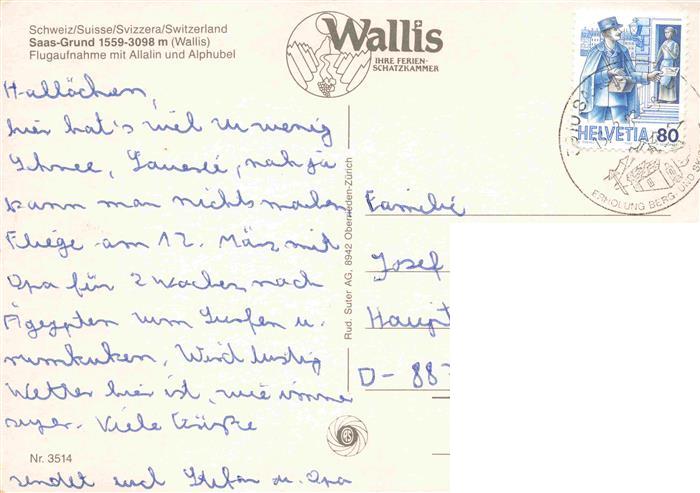 Schweiz/Suisse/Svizzera/Switzerland
Saas-Grund 1559-3098 m (Wallis)
Flugaufnahme mit Allalin und Alphubel
Wallis
IHRE FERIEN-
SCHATZKAMMER
HELVETIA 80
ERHOLUNG BERG- UND
Hallöchen,
hier hat's viel zu wenig
Schnee, naja
kann man nichts machen
Fliege am 12. März mit
Opa für 2 Wochen nach
Ägypten zum Surfen u.
rumkuken, Wird lustig
Wetter hier ist, wie immer
super. Viele Grüße
sendet euch Stefan u. Opa
Familie
Josef
Haupt
D-88
Rud. Suter AG, 8942 Oberrieden-Zürich
Nr. 3514